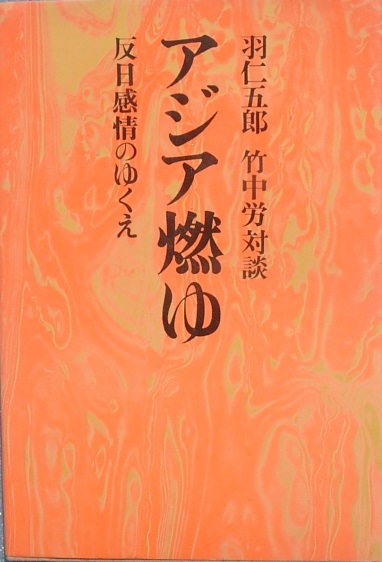 羽仁五郎 竹中労対談
アジア燃ゆ
反日感情のゆくえ